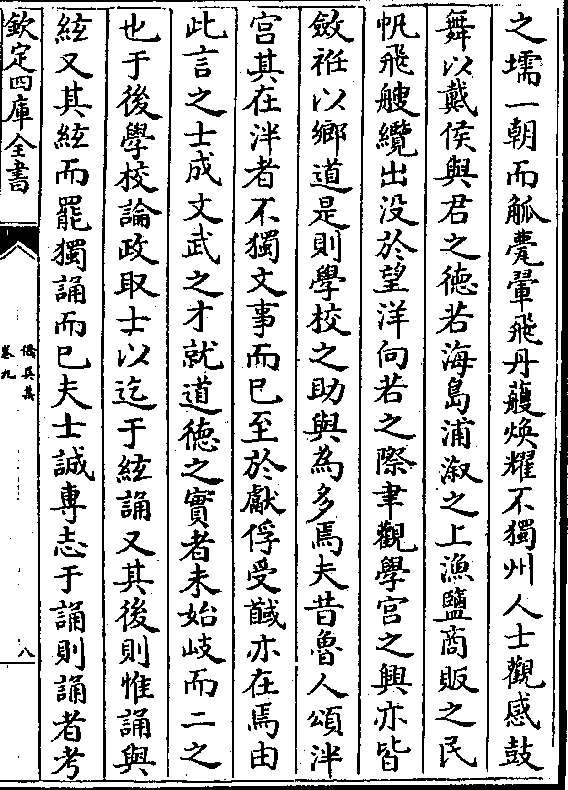 之壖一朝而觚甍翬飛丹雘煥耀不獨州人士觀感鼓
舞以戴侯與君之德若海島浦溆之上漁鹽商販之民
帆飛艘纜出没於望洋向若之際聿觀學宫之興亦皆
斂袵以鄉道是則學校之助與為多焉夫昔魯人頌泮
宫其在泮者不獨文事而已至於獻俘受馘亦在焉由
此言之士成文武之才就道德之實者未始岐而二之
也于後學校論政取士以迄于絃誦又其後則惟誦與
絃又其絃而罷獨誦而已夫士誠專志于誦則誦者考
欽定四庫全書
僑吳集
卷九
八